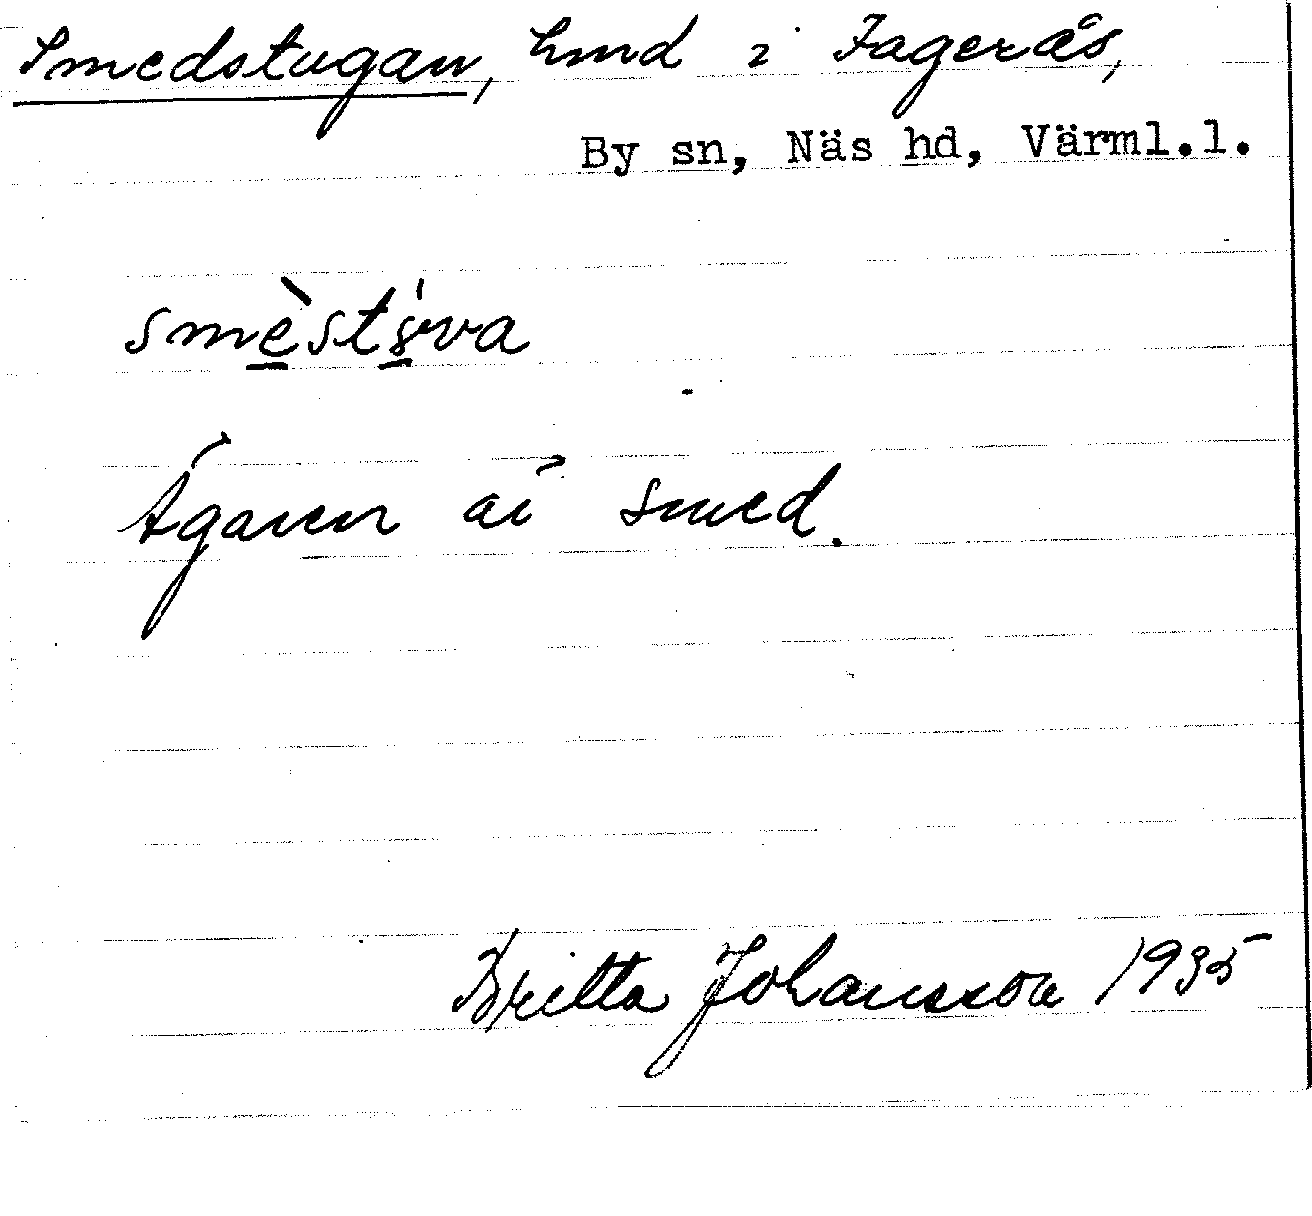 Smedstugan, hmd i Fagerås,
By sn, Näs hd, Värml.l.
Ägaren är smed.
Britta Johansson 1935